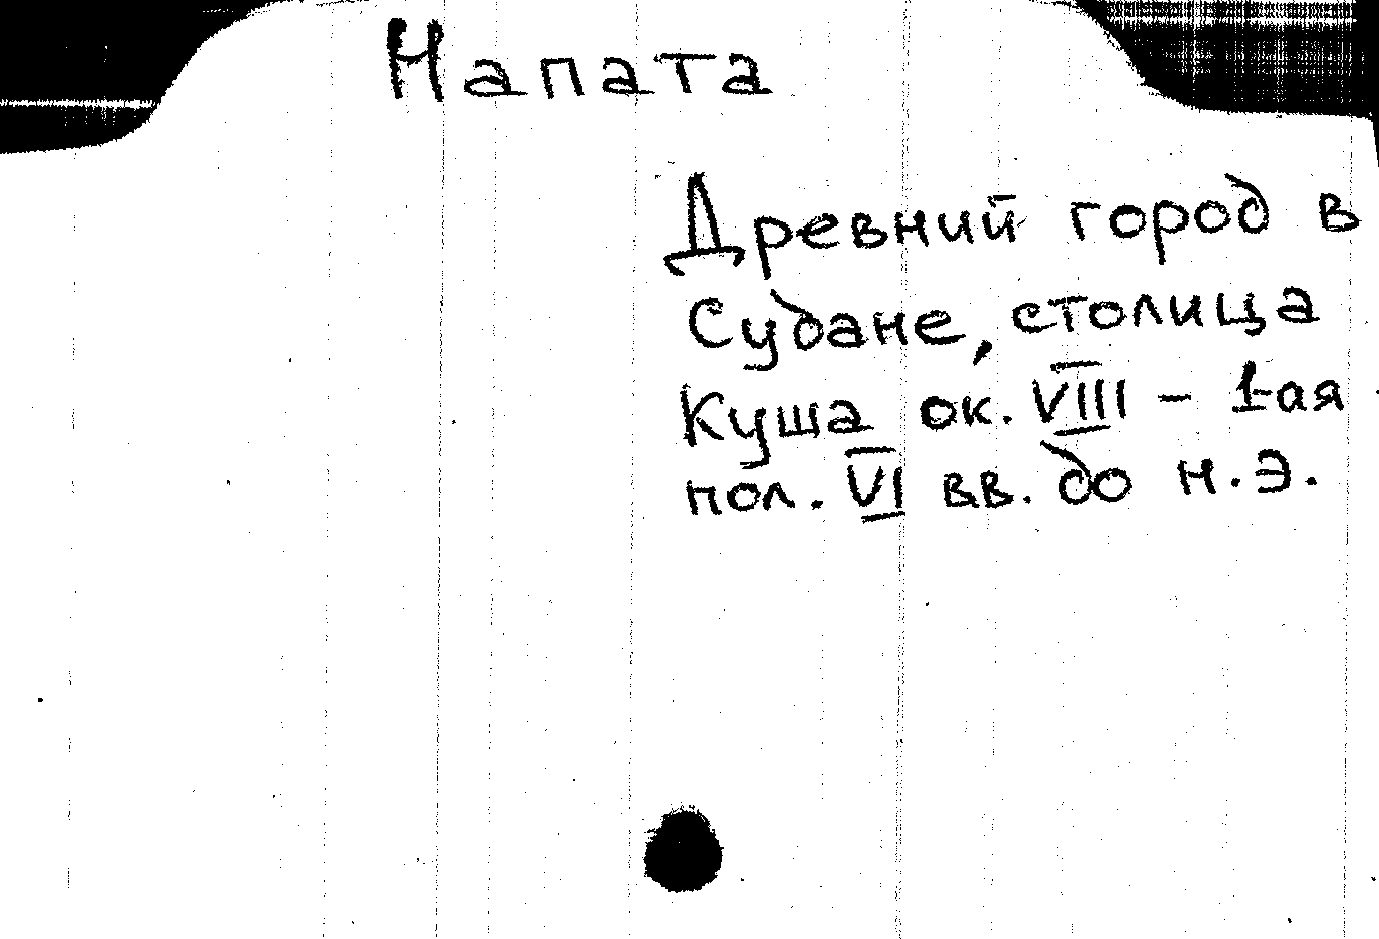 Напата
Древний город в
Судане, столица
Куша ок. VIII – 1-ая
пол. VI вв. до н.э.